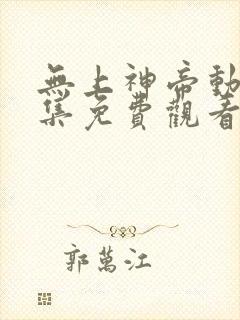 無上神帝動
集免費觀看
郭萬江